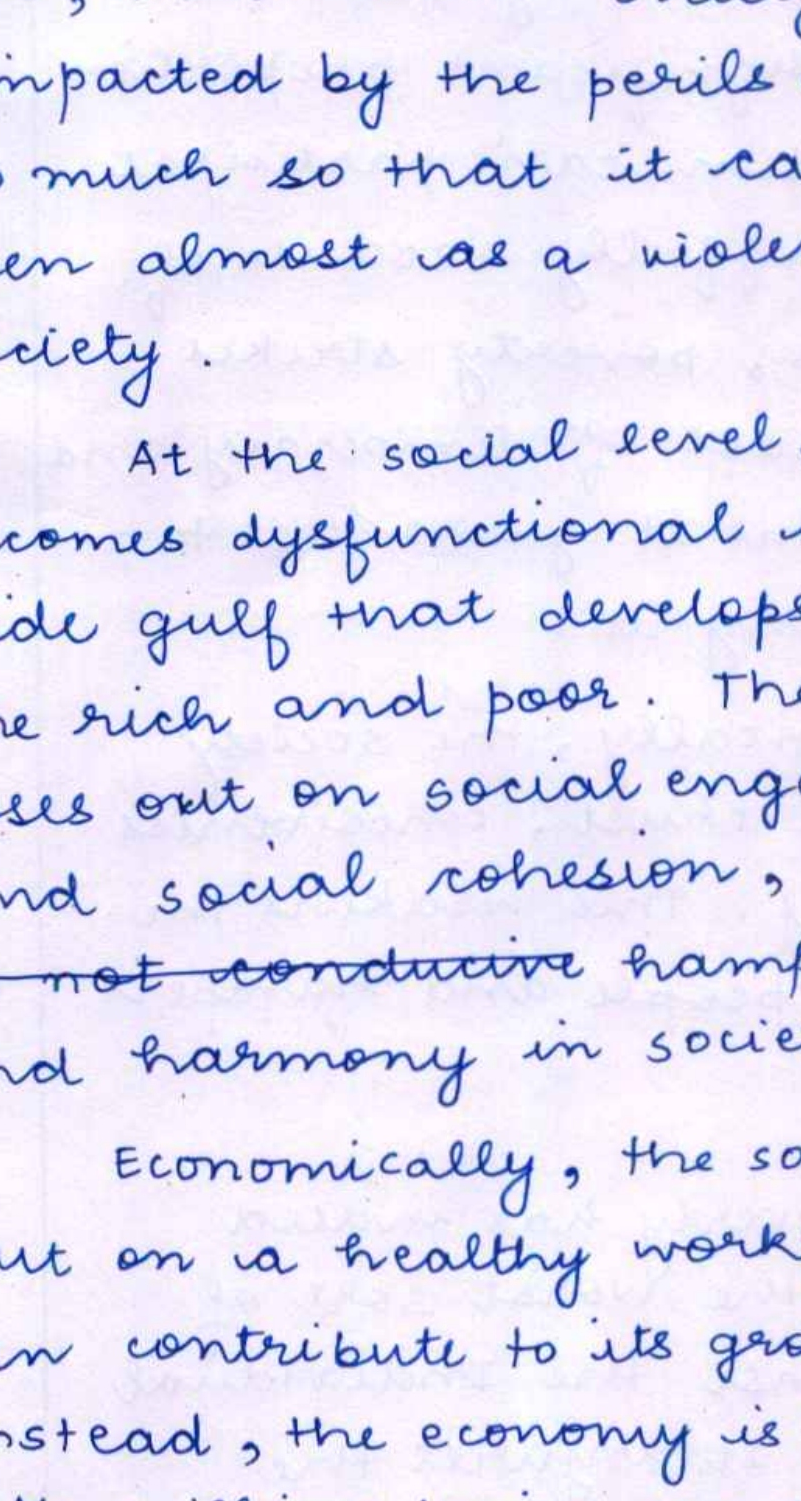 npacted by the perils
much so that it ca
en almost as a viole
ciety.
At the social level
comes dysfunctional
ide gulf that develops
he rich and poor. The
ses out on social eng
nd social cohesion,
not conducive hamp
nd harmony in socie
Economically, the so
ut on a healthy work
n contribute to its gro
nstead, the economy is